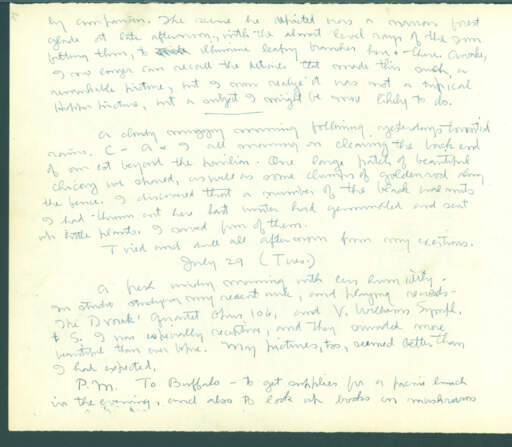 by comparison. The scene he depicted was a narrow forest
glade at late afternoon, with the almost level rays of the sun
hitting thru, to illumine leafy branches here & there. Awake,
I no longer can recall the details that made this such a
remarkable picture, but I now realize it was not a typical
Hopper picture, but a subject I might be more likely to do.
A cloudy muggy morning following yesterday's torrential
rains. C – A & I all morning in clearing the back end
of our lot beyond the pavilion. One large patch of beautiful
chicory we spared, as well as some clumps of goldenrod along
the fence. I discovered that a number of the black walnuts
I had thrown out here last winter had germinated and sent
up little plants. I saved five of them.
Tired and dull all afternoon from my exertions.
July 29 (Tues.)
A fresh windy morning with less humidity.
In studio studying my recent work, and playing records –
The Dvorak Quartet Opus 106, and V. Williams Symph.
# 5. I was especially receptive, and they sounded more
beautiful than ever before. My pictures, too, seemed better than
I had expected.
P.M. To Buffalo – to get supplies for a picnic lunch
in the evening, and also to look at books on mushrooms